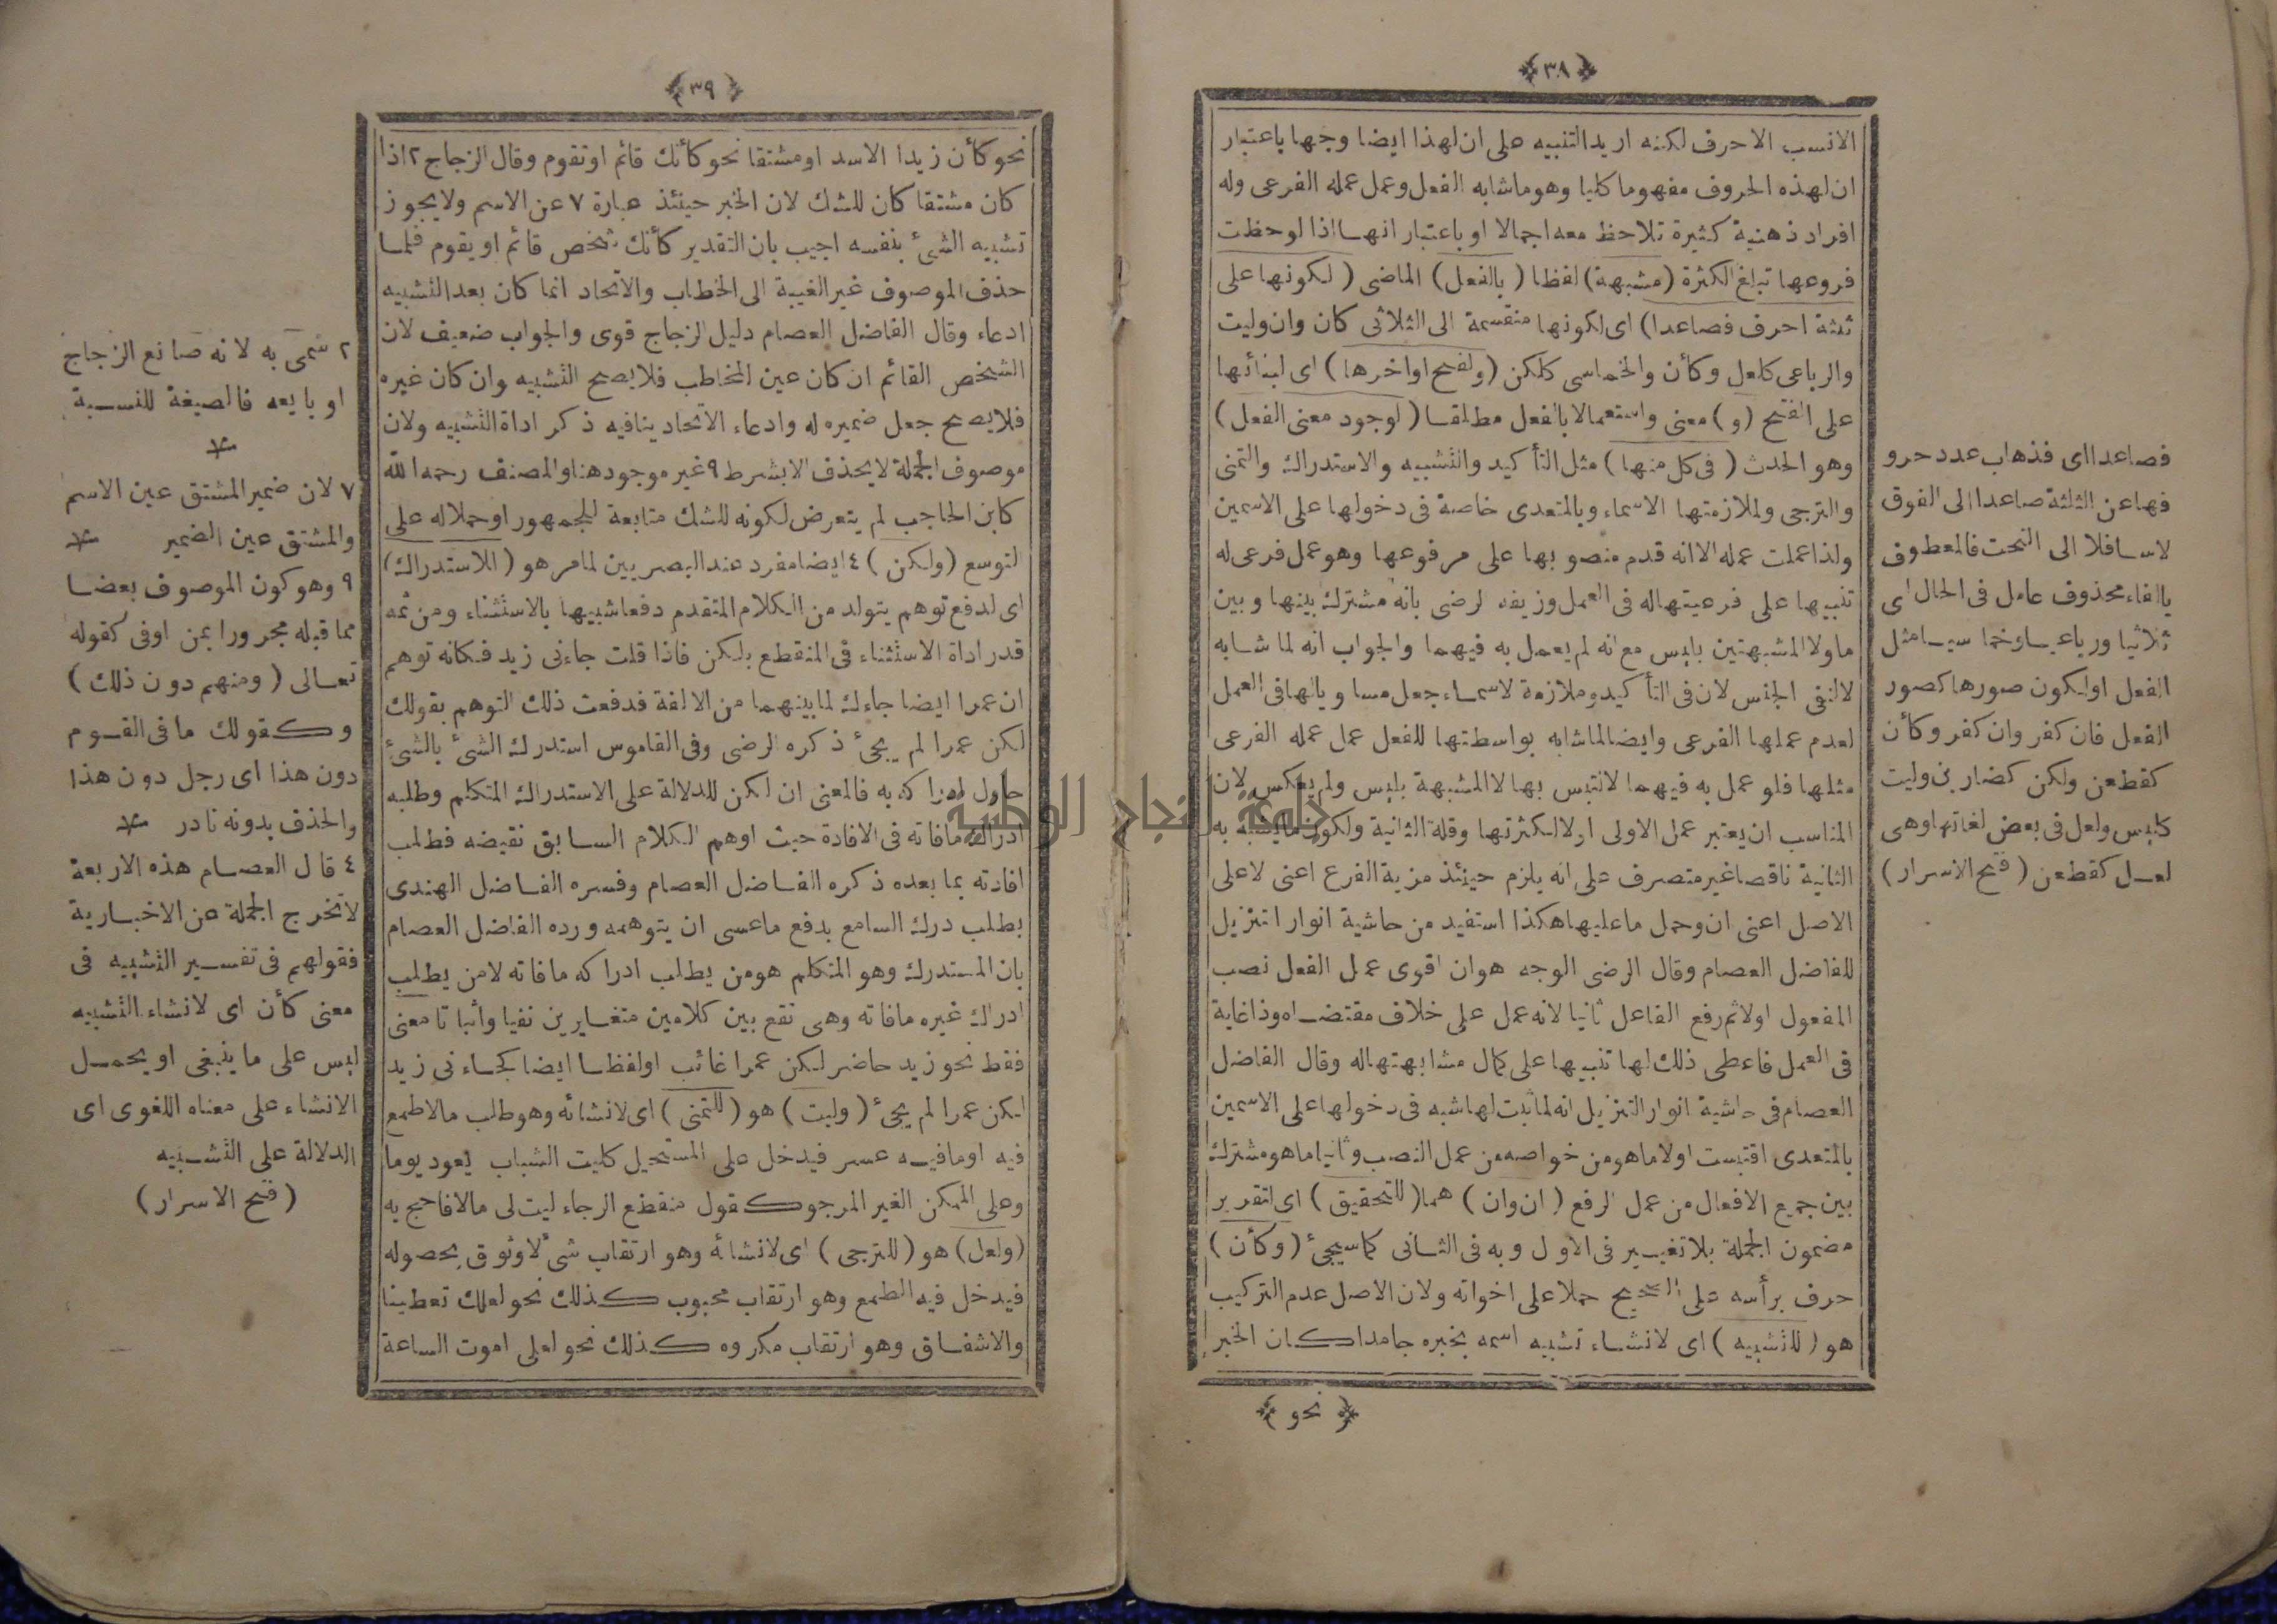 ﴿٣٨﴾
الانسب الاحرف لكنه اريد التنبيه على ان لهذا ايضا وجها باعتبار
ان لهذه الحروف مفهوما كليا وهو ماشابه الفعل وعمل عمله الفرعى وله
افراد ذهنية كثيرة تلاحظ معه اجمالا او باعتبار انها اذا لوحظت
فروعها تبلغ الكثرة (مشبهة) لفظا (بالفعل) الماضى (لكونها على
ثلثة احرف فصاعدا) اى لكونها منقسمة الى الثلاثى كان وان وليت
والرباعى كلعل وكأن والخماسى كلكن (ولفتح اواخرها) اى لبنائها
على الفتح (و) معنى واستعمالا بالفعل مطلقا (لوجود معنى الفعل)
وهو الحدث (فى كل منها) مثل التأكيد والتشبيه والاستدراك والتمنى
والترجى ولملازمتها الاسماء وبالمتعدى خاصة فى دخولها على الاسمين
ولذا عملت عمله الا انه قدم منصوبها على مرفوعها وهو عمل فرعى له
تنبيها على فرعيتها له فى العمل وزيفه الرضى بانه مشترك بينها وبين
ماولا المشبهتين بليس مع انه لم يعمل به فيهما والجواب انه لما شابه
لا لنفى الجنس لان فى التأكيد وملازمة لاسماء جعل مساويا لها فى العمل
لعدم عملها الفرعى وايضا لما شابه بواسطتها للفعل عمل عمله الفرعى
مثلها فلو عمل به فيهما لالتبس بها لا المشبهة بليس ولم يعكس لان
المناسب ان يعتبر عمل الاولى اولا لكثرتها وقلة الثانية ولكون مايشبه به
الثانية ناقصا غير متصرف على انه يلزم حينئذ مزية الفرع اعنى لا على
الاصل اعنى ان وحمل ما عليها هكذا استفيد من حاشية انوار التنزيل
للفاضل العصام وقال الرضى الوجه هو ان اقوى عمل الفعل نصب
المفعول اولا ثم رفع الفاعل ثانيا لانه عمل على خلاف مقتضاه وذا غاية
فى العمل فاعطى ذلك لها تنبيها على كمال مشابهتها له وقال الفاضل
العصام فى حاشية انوار التنزيل انه لما ثبت لها شبه فى دخولها على الاسمين
بالمتعدى اقتبست اولا ما هو من خواصه من عمل النصب وثانيا ما هو مشترك
بين جميع الافعال من عمل الرفع (ان وان) هما (للتحقيق) اى لتقرير
مضمون الجملة بلا تغيير فى الاول وبه فى الثانى كما سيجئ (وكأن)
حرف برأسه على الصحيح حملا على اخواته ولان الاصل عدم التركيب
هو (للتشبيه) اى لانشاء تشبيه اسمه بخبره جامدا كان الخبر
﴿نحو﴾
فصاعدا اى فذهاب عدد حرو
فها عن الثلثة صاعدا الى الفوق
لا سافلا الى التحت فالمعطوف
بالفاء محذوف عامل فى الحال اى
ثلاثيا ورباعيا وخماسيا مثل
الفعل او لكون صورها كصور
الفعل فان كفر وان كفر وكأن
كقطعن ولكن كضاربن وليت
كليس ولعل فى بعض لغاتها وهى
لعل كقطعن (فتح الاسرار)
﴿٣٩﴾
نحو كأن زيدا الاسد او مشتقا نحو كأنك قائم او تقوم وقال الزجاج ٢ اذا
كان مشتقا كان للشك لان الخبر حينئذ عبارة ٧ عن الاسم ولا يجوز
تشبيه الشئ بنفسه اجيب بان التقدير كأنك شخص قائم او يقوم فلما
حذف الموصوف غير الغيبة الى الخطاب والاتحاد انما كان بعد التشبيه
ادعاء وقال الفاضل العصام دليل الزجاج قوى والجواب ضعيف لان
الشخص القائم ان كان عين المخاطب فلا يصح التشبيه وان كان غيره
فلا يصح جعل ضميره له وادعاء الاتحاد ينافيه ذكر اداة التشبيه ولان
موصوف الجملة لا يحذف الا بشرط ٩ غير موجود هنا والمصنف رحمه الله
كابن الحاجب لم يتعرض لكونه للشك متابعة للجمهور او حملا له على
التوسع (ولكن) ٤ ايضا مفرد عند البصريين لما مر هو (للاستدراك)
اى لدفع توهم يتولد من الكلام المتقدم دفعا شبيها بالاستثناء ومن ثمه
قدر اداة الاستثناء فى المنقطع بلكن فاذا قلت جاءنى زيد فكانه توهم
ان عمرا ايضا جاءك لما بينهما من الالفة فدفعت ذلك التوهم بقولك
لكن عمرا لم يجئ ذكره الرضى وفى القاموس استدرك الشئ بالشئ
حاول ادراكه به فالمعنى ان لكن للدلالة على الاستدراك المتكلم وطلبه
ادراك مافاته فى الافادة حيث اوهم الكلام السابق نقيضه فطلب
افادته بما بعده ذكره الفاضل العصام وفسره الفاضل الهندى
بطلب درك السامع بدفع ماعسى ان يتوهمه ورده الفاضل العصام
بان المستدرك وهو المتكلم هو من يطلب ادراكه مافاته لا من يطلب
ادراك غيره مافاته وهى تقع بين كلامين متغايرين نفيا واثباتا معنى
فقط نحو زيد حاضر لكن عمرا غائب او لفظا ايضا كجاءنى زيد
لكن عمرا لم يجئ (وليت) هو (للتمنى) اى لانشائه وهو طلب مالا طمع
فيه او ما فيه عسر فيدخل على المستحيل كليت الشباب يعود يوما
وعلى الممكن الغير المرجو كقول منقطع الرجاء ليت لى مالا فاحج به
(ولعل) هو (للترجى) اى لانشائه وهو ارتقاب شئ لا وثوق بحصوله
فيدخل فيه الطمع وهو ارتقاب محبوب كذلك نحو لعلك تعطينا
والاشفاق وهو ارتقاب مكروه كذلك نحو لعلى اموت الساعة
٢ سمى به لانه صانع الزجاج
او بايعه فالصيغة للنسبة
٧ لان ضمير المشتق عين الاسم
والمشتق عين الضمير
٩ وهو كون الموصوف بعضا
مما قبله مجرورا بمن اوفى كقوله
تعالى (ومنهم دون ذلك)
وكقولك ما فى القوم
دون هذا اى رجل دون هذا
والحذف بدونه نادر
٤ قال العصام هذه الاربعة
لا تخرج الجملة عن الاخبارية
فقولهم فى تفسير التشبيه فى
معنى كأن اى لانشاء التشبيه
ليس على ما ينبغى او يحمل
الانشاء على معناه اللغوى اى
الدلالة على التشبيه
(فتح الاسرار)
جامعة النجاح الوطنية